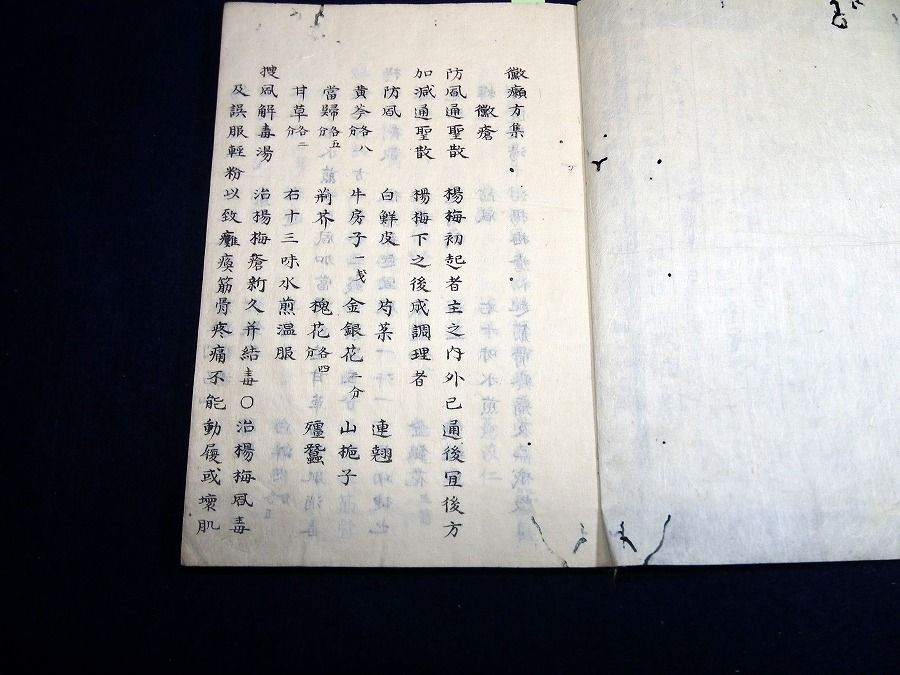 黴癩方集
黴瘡
防風通聖散 楊梅初起者主之內外已通後宜後方
加減通聖散 楊梅下之後成調理者
防風 白鮮皮 芍藥 連翹
黄芩各八分 牛房子一戔 金銀花一分 山梔子
當歸各五分 荊芥 槐花各四分 殭蠶
甘草各二分 右十三味水煎溫服
搜風解毒湯 治楊梅瘡新久并結毒○治楊梅風毒
及誤服輕粉以致癱瘓筋骨疼痛不能動履或壞肌